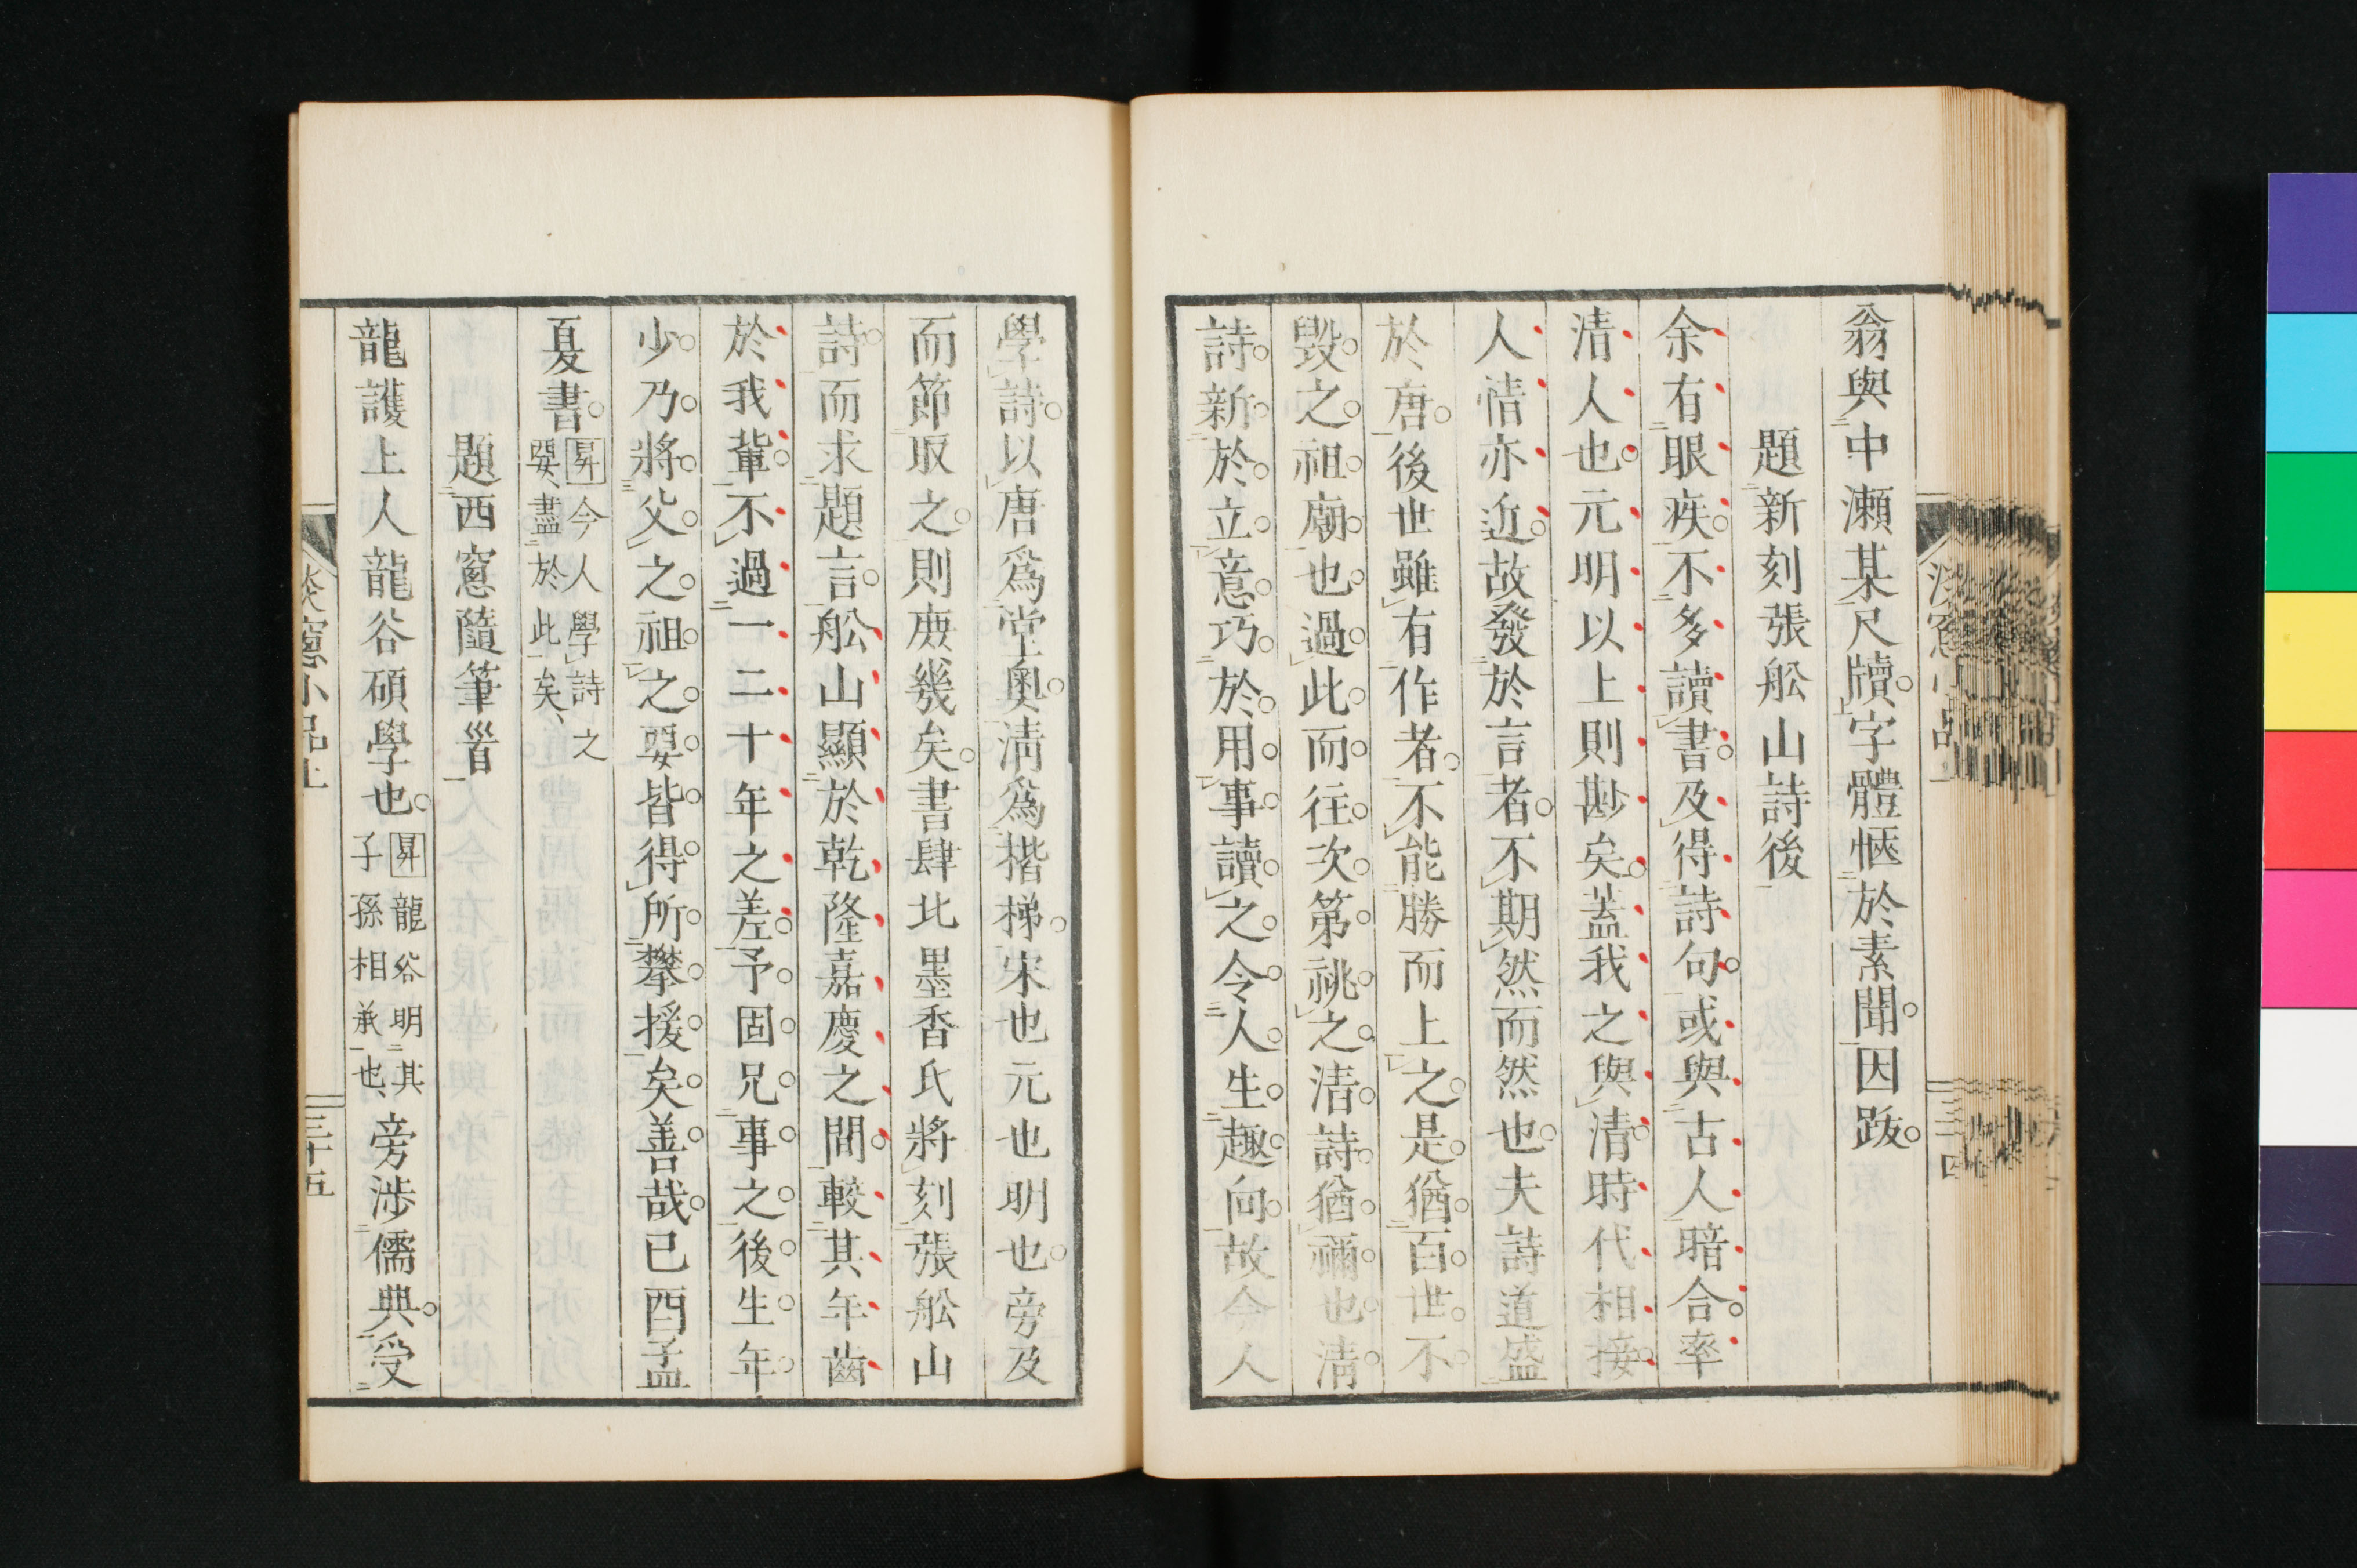 翁與中瀨某尺牘字體愜於素聞因跋
題新刻張舩山詩後
余有眼疾不多讀書及得詩句或與古人暗合率
清人也元明以上則尠矣蓋我之與清時代相接
人情亦近故發於言者不期然而然也夫詩道盛
於唐後世雖有作者不能勝而上之是猶百世不
毀之祖廟也過此而往次第祧之清詩猶禰也清
詩新於立意巧於用事讀之令人生趣向故今人
學詩以唐爲堂奧清爲揩梯宋也元也明也旁及
而節取之則庻幾矣書肆北墨香氏將刻張舩山
詩而求題言舩山顯於乾隆嘉慶之間較其年齒
於我輩不過一二十年之差予固兄事之後生年
少乃將父之祖之要皆得所攀援矣善哉己酉孟
夏書
昇今人學詩之
要盡於此矣
題西窻隨筆首
龍護上人龍谷碩學也
昇龍谷明其
子孫相承也
旁涉儒典受
淡窻小品上
三十五